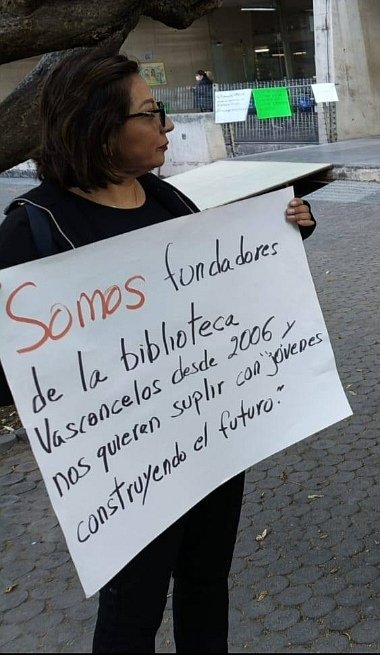 Somos fundadores
de la biblioteca
Vasconcelos desde 2006 y
nos quieren suplir con "jóvenes
construyendo el futuro."